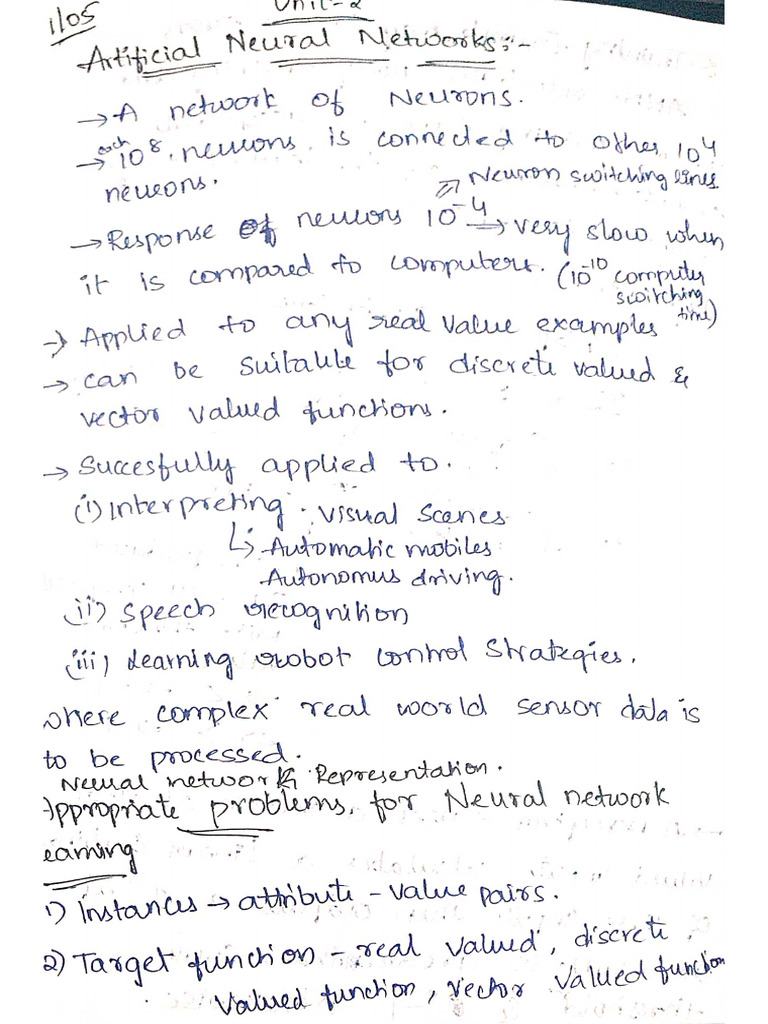 1/05
Unit-2
Artificial Neural Networks:-
→ A network of Neurons.
→ each 10^8 neurons is connected to other 10^4
neurons.
⇗ Neuron switching lines
→ Response of neurons 10^-4 → very slow when
it is compared to computers. (10^-10 computer
switching
time)
→ Applied to any real value examples
→ can be suitable for discrete valued &
vector valued functions.
→ Succesfully applied to.
(i) Interpreting visual scenes
↳ Automatic mobiles
Autonomus driving.
(ii) speech recognition
(iii) Learning robot control strategies.
where complex real world sensor data is
to be processed.
Neural network Representation.
Appropriate problems for Neural network
earning
1) instances → attribute - value pairs.
2) Target function - real valued, discrete
valued function, vector valued function